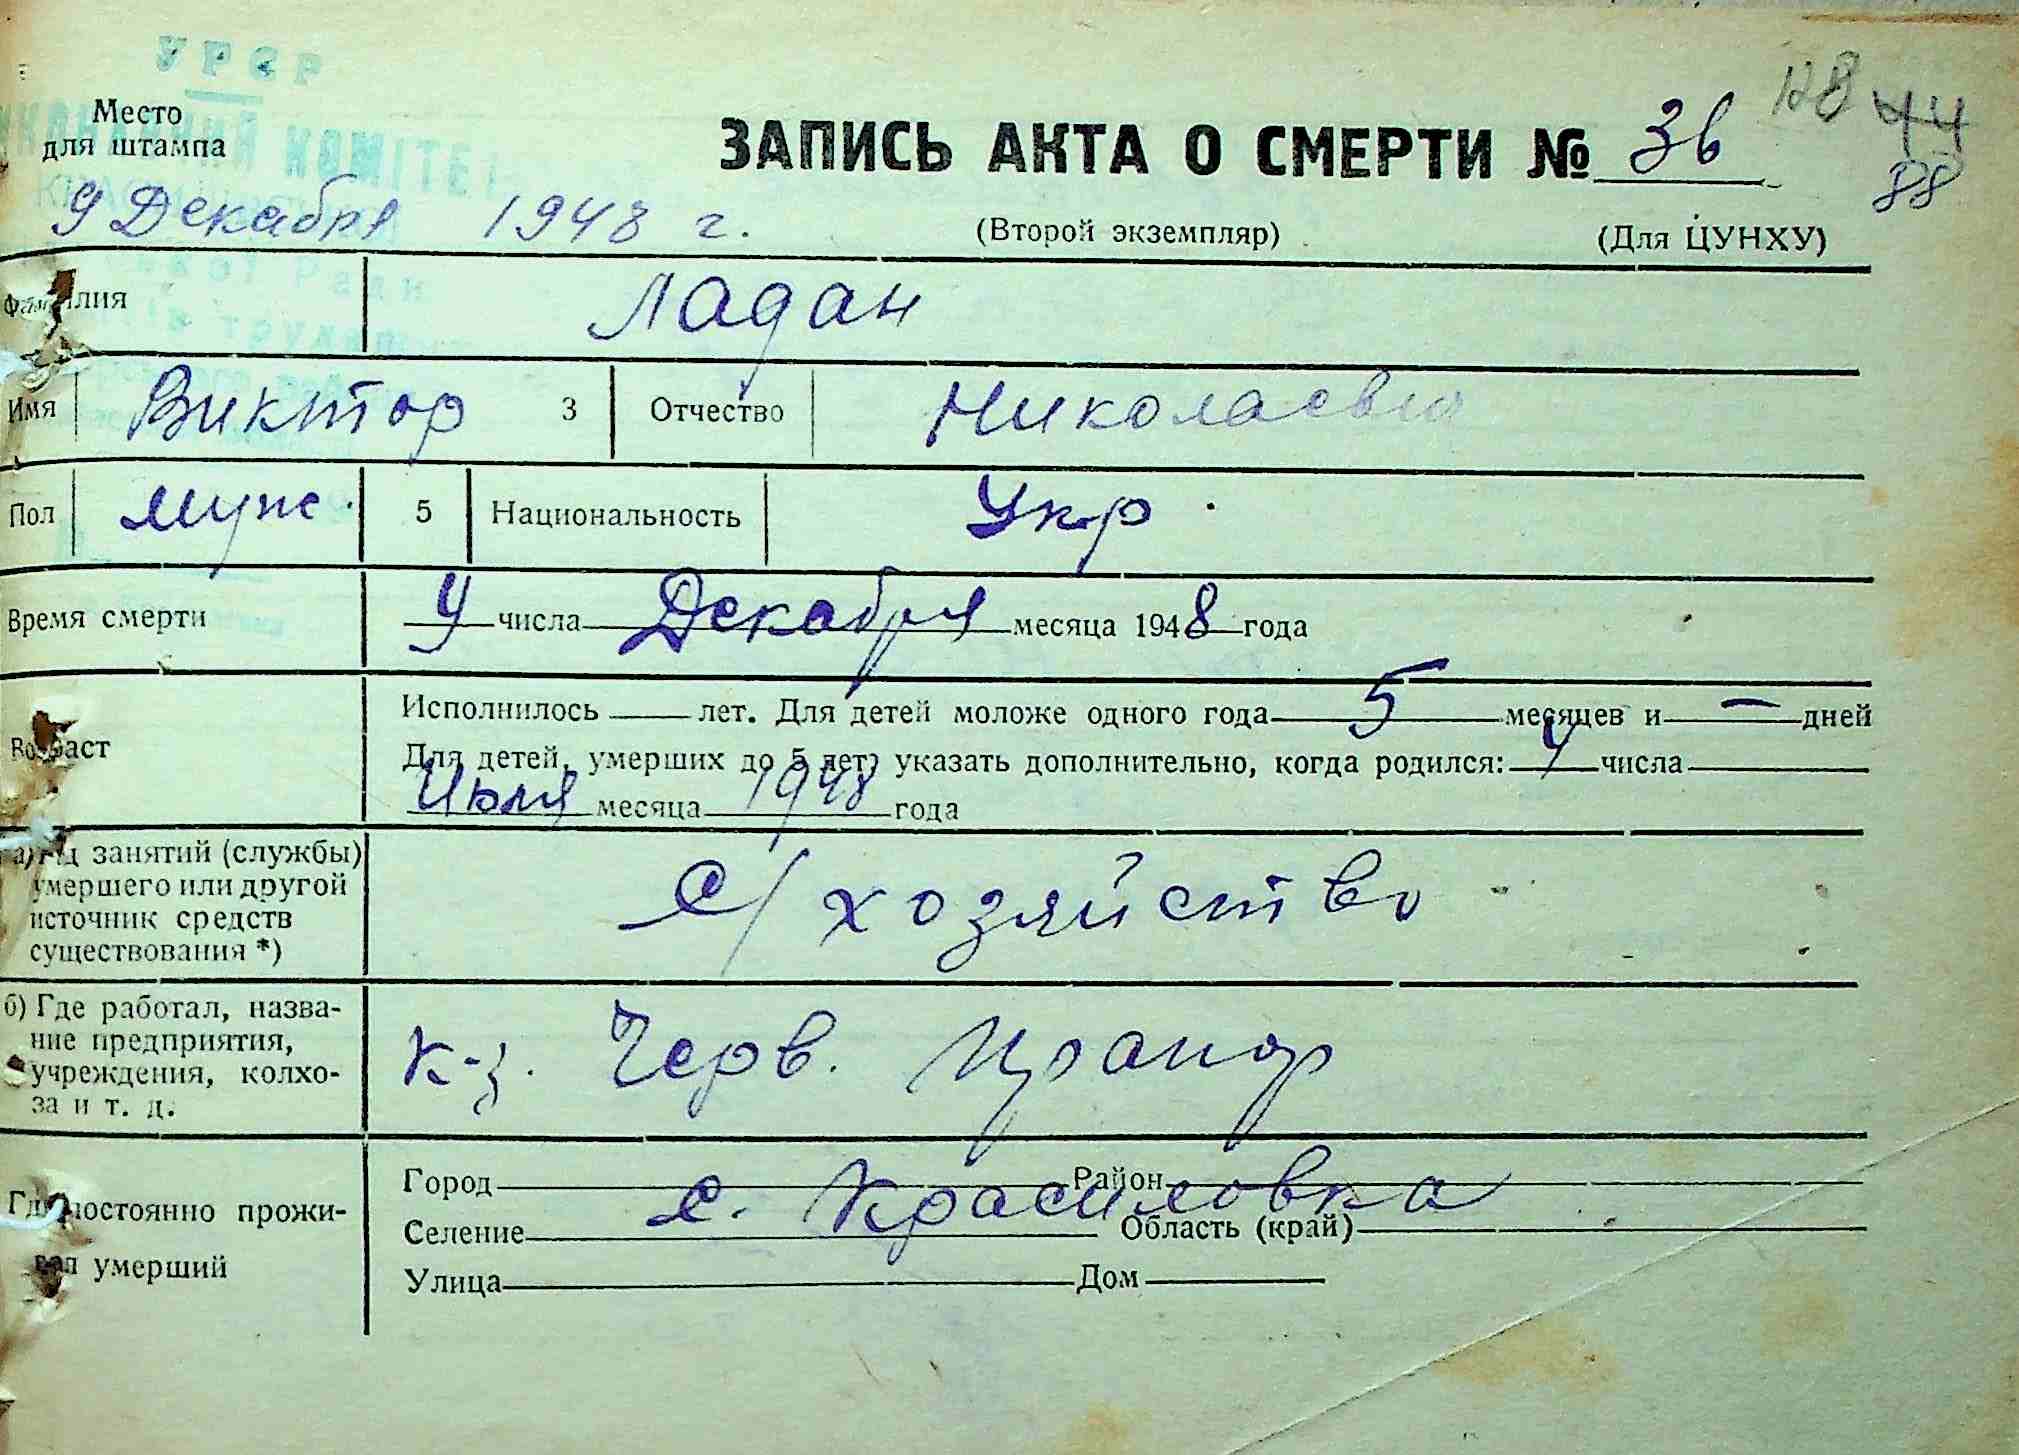 УРСР
Место
для штампа
КОМІТЕТ
ЗАПИСЬ АКТА О СМЕРТИ № 36
128 44
88
9 Декабря 1948 г.
(Второй экземпляр)
(Для ЦУНХУ)
Фамилия Ладан
Имя Виктор 3 Отчество Николаевич
Пол муж. 5 Национальность Укр.
Время смерти 9 числа Декабря месяца 1948 года
Возраст
Исполнилось — лет. Для детей моложе одного года 5 месяцев и — дней
Для детей, умерших до 5 лет, указать дополнительно, когда родился: 4 числа
Июля месяца 1948 года
а) Род занятий (службы)
умершего или другой
источник средств
существования *)
С/хозяйство
б) Где работал, назва-
ние предприятия,
учреждения, колхо-
за и т. д.
к-з. Черв. Прапор
Где постоянно прожи-
вал умерший
Город Район
с. Красиловка
Селение Область (край)
Улица Дом